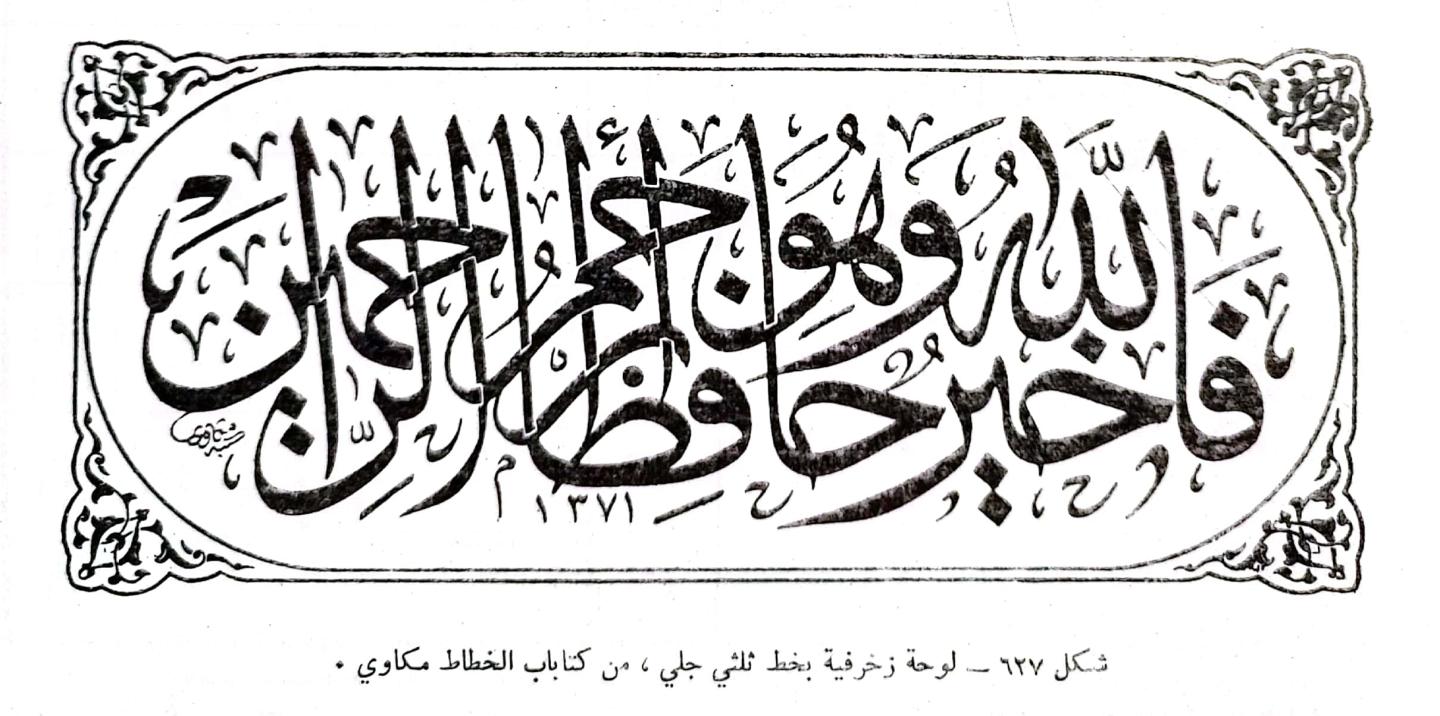 فَاللّٰهُ خَيْرٌ حَافِظًا وَهُوَ أَرْحَمُ الرَّاحِمِينَ
١٣٧١
شكل ٦٢٧ ــ لوحة زخرفية بخط ثلثي جلي ، من كتاباب الخطاط مكاوي .